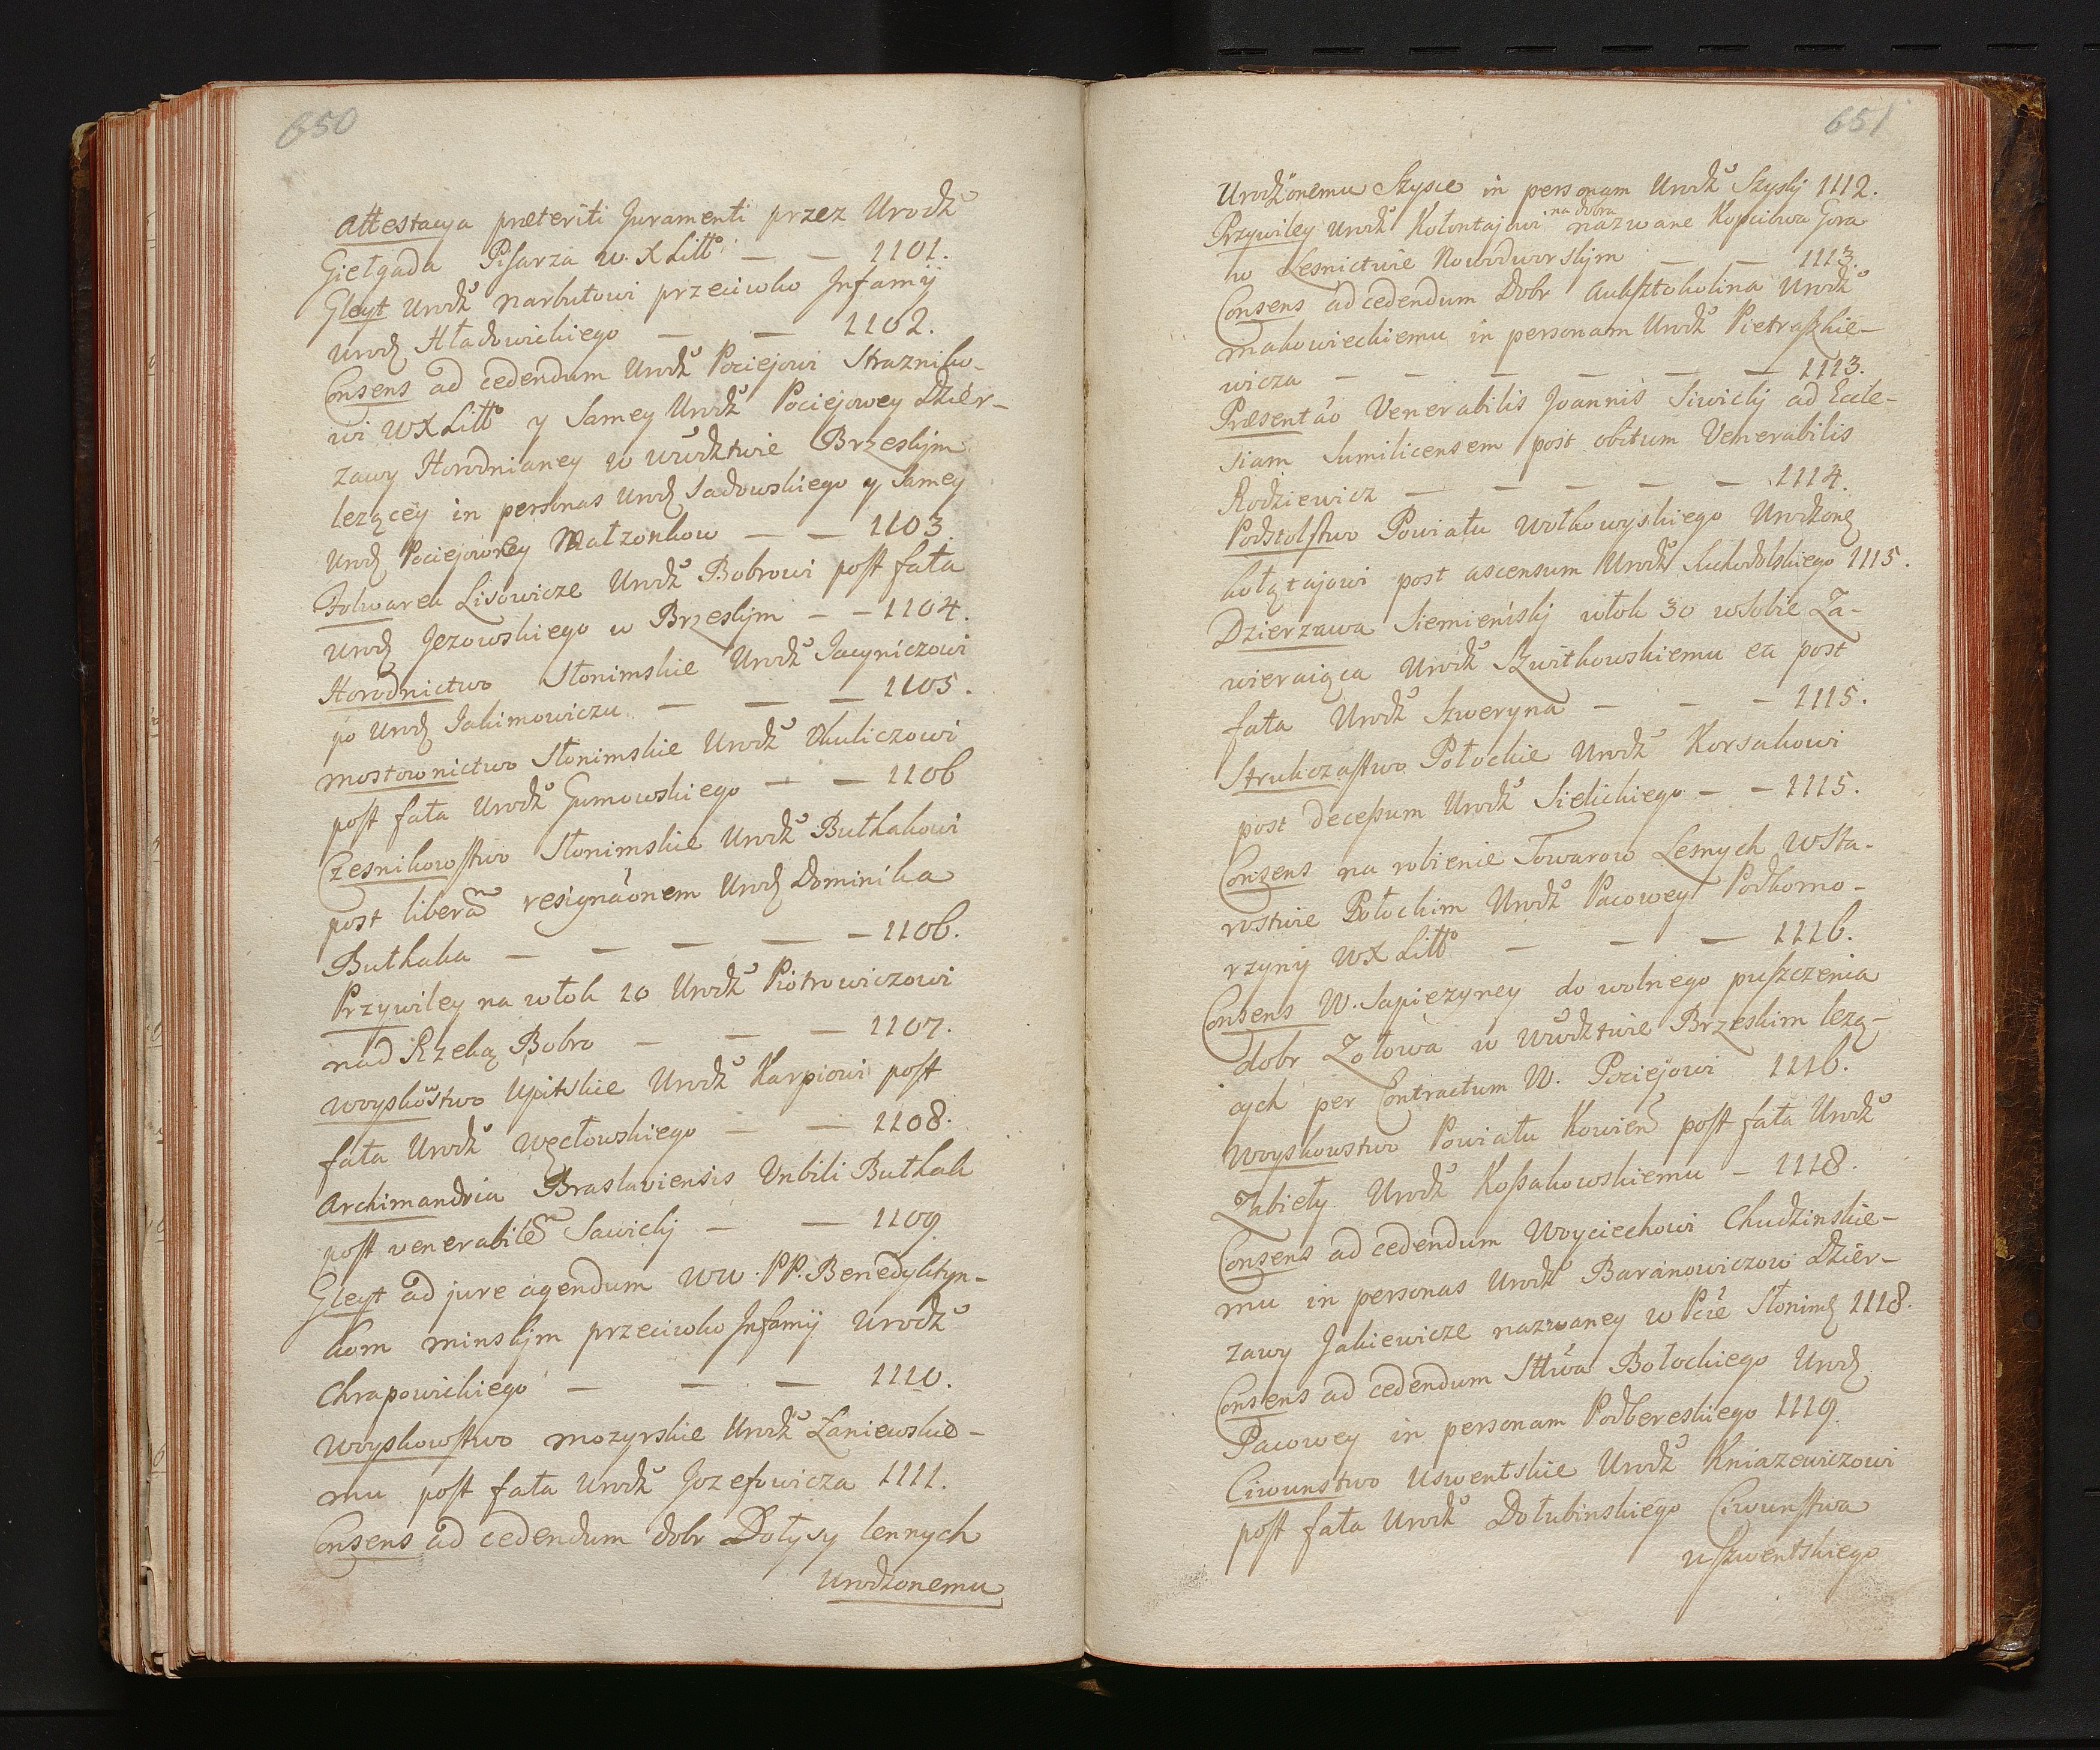 650
Attestacya præteriti Juramenti przez Urodź
Giełgada Pisarza W. X Litt° — — 1101.
Gleyt Urodź Narbutowi przeciwko Infamij
Urodź Hładowickiego — — 1102.
Consens ad cedendum Urodź Pociejowi Strazniko-
wi WXLitt° y Samey Urodź Pociejowey Dzier-
zawy Horodnianey w wwdztwie Brzeskjm
lezącey in personas Urodź Sadowskiego y Samey
Urodź Pociejowney Małzonkow — — 1103.
Folwarek Lisowicze Urodź Bobrowi post fata
Urodź Jezowskiego w Brzeskjm — — 1104.
Horodnictwo Słonimskie Urodź Jacyniczowi
po Urodź Jakimowiczu — — — 1105.
Mostownictwo Słonimskie Urodź Okuliczowi
post fata Urodź Gumowskiego — — 1106
Czesnikowstwo Słonimskie Urodź Bułhakowi
post liberam resignaonem Urodź Dominika
Bułhaka — — — — — 1106.
Przywiley na włok 20 Urodź Piotrowiczowi
nad Rzeką Bobro — — — 1107.
Woyskowstwo Upitskie Urodź Karpiowi post
fata Urodź Węcłowskiego — — 1108.
Archimandria Braslaviensis Vnbili Bułhak
post venerabilem Sawickj — — 1109
Gleyt ad jure agendum WW. PP. Benedyktyn-
kom Minskjm przeciwko Infamij Urodź
Chrapowickiego — — — 1110.
Woyskowstwo Mozyrskie Urodź Łaniewskie-
mu post fata Urodź Jozefowicza 1111.
Consens ad cedendum dobr Dołysy lennych
Urodzonemu
651
Urodzonemu Szysce in personam Urodź Szyskj 1112.
Przywiley Urodź Kołontajowi na dobra nazwane Kopciowa Gora
w Lesnictwie Nowodworskjm — — 1113.
Consens ad cedendum Dobr Auksztokolina Urodź
Makowieckiemu in personam Urodź Pietraszkie-
wicza — — — — — — 1113.
Præsentao Venerabilis Joannis Siwickj ad Eccle-
siam Sumilicensem post obitum Venerabilis
Rodziewicz — — — — — 1114.
Podstolstwo Powiatu Wołkowyskiego Urodzone
Kołątajowi post ascensum Urodź Suchodolskiego 1115.
Dzierzawa Siemieńskj włok 30 w Sobie Za-
wieraiąca Urodź Szwitkowskiemu ea post
fata Urodź Szweryna — — — 1115.
Strukczastwo Połockie Urodź Korsakowi
post decessum Urodź Sielickiego — — 1115.
Consens na robienie Towarow Lesnych w Sta-
rostwie Bołockim Urodź Pacowey Podkomo-
rzyny WX Litt° — — — 1116.
Consens W. Sapiezyney do wolnego puszczenia
dobr Zołowa w wwdztwie Brzeskim lezą-
cych per Contractum W. Pociejowi 1116.
Woyskowstwo Powiatu Kowień post fata Urodź
Zabieły Urodź Kossakowskiemu — 1118.
Consens ad cedendum Woyciechowi Chudzinskie-
mu in personas Urodź Baranowiczow Dzier-
zawy Jakiewicze nazwaney w Pcie Słonimź 1118.
Consens ad cedendum Sttwa Bołockiego Urodź
Pacowey in personam Podbereskiego 1119.
Ciwunstwo Uswentskie Urodź Kniazewiczowi
post fata Urodź Dołubinskiego Ciwunstwa
Uszwentskiego